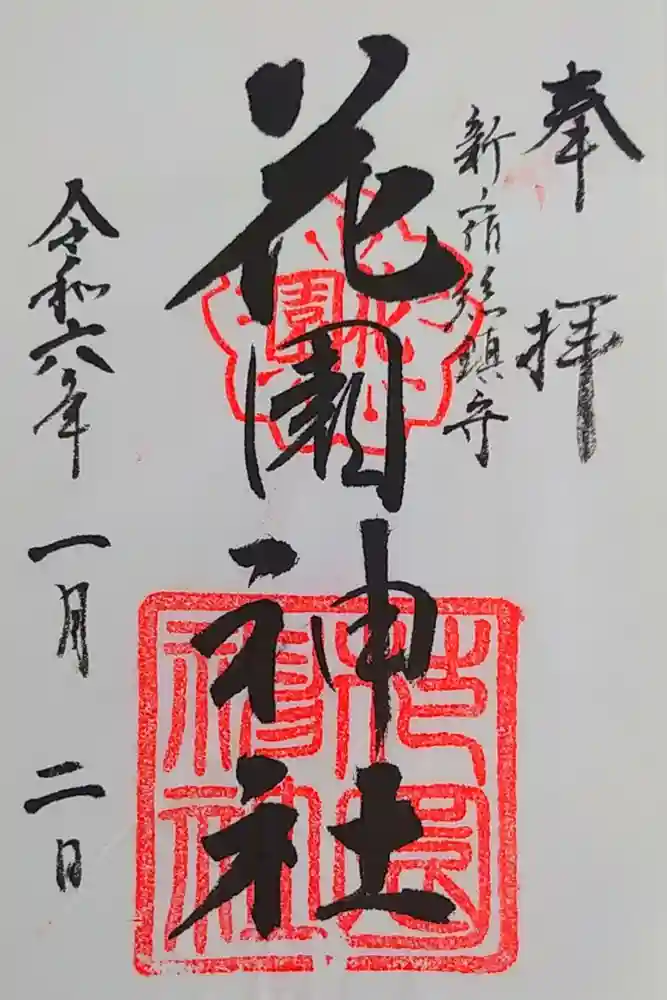 奉拝
新宿総鎮守
花園神社
花園
花園神社
令和六年一月二日